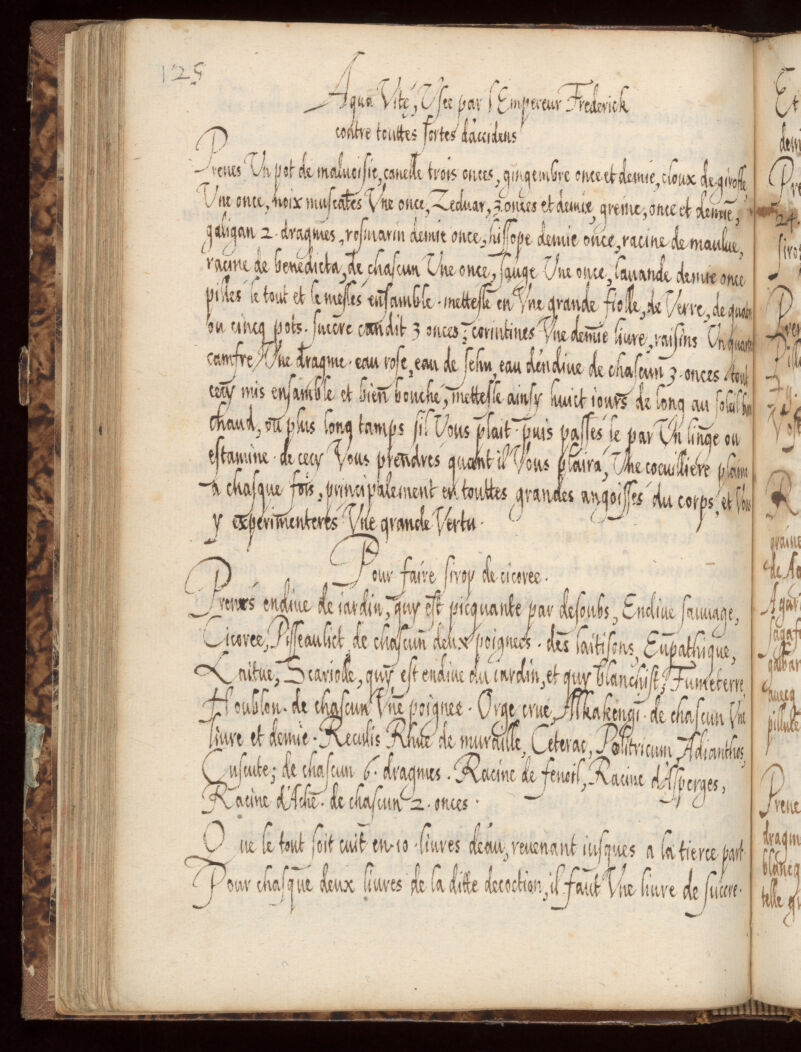 125
Aqua Vité, Usee par l'Empereur Frederick
contre touttes sortes d'accidens
Prenes Un pot de malvoisie, canelle trois onces, gingembre once et demie, cloux de giroffe,
Une once, noix muscates Une once, Zeduar, 3 onces et demie, greine, once et demie,
galigan 2. dragmes, rosmarin demie once, hissope demie once, racine de maulue,
racine de benedicta, de chascun Une once, sauge Une once, lauande demie once
pilles le tout et le mesles ensamble. mettesle en Une grande fiolle, de Verre, de quatre
ou cincq pots. succre candit 3 onces, corintines Une demie liure, raisins Un quart
camfre Une dragme. eau rose, eau de sehu, eau déndiue de chascun 3. onces. tout
cecy mis ensamble et bien bouché, mettesle ainsy huict iours de long au soleil
chaud, ou plus long tamps sil Vous plait. puis passés le par Un linge ou
estamine. de cecy Vous prendres quant il Vous plaira, Une cocuilliere plaine
a chasque fois, principalement en touttes grandes angoisses du corps, et Vous
y experimenterés Une grande Vertu.
Pour faire sirop de cicoree.
Prenés endiue de iardin, quy est picquante par desoubs, Endiue sauuage,
Cicoree, Pisseaulict, de chascun deux poignees. des laitisons, Eupathique,
Laitue, Scariolle, quy est endiue du iardin, et quy blanchist, Fumeterre,
Houblon. de chascun Une poignee. Orge crue, Alkakengi. de chascun Une
liure et demie. Reculis Rhue de muraille, Ceterac, Politricum, Adianthos,
Cuscute; de chascun 6. dragmes. Racine de fenoil, Racine d'Asperges,
Racine d'Ache. de chascun 2. onces.
Que le tout soit cuit en. 10. liures déau, reuenant iusques a la tierce part.
Pour chasque deux liures de la ditte decoction, il faut Une liure de succre.